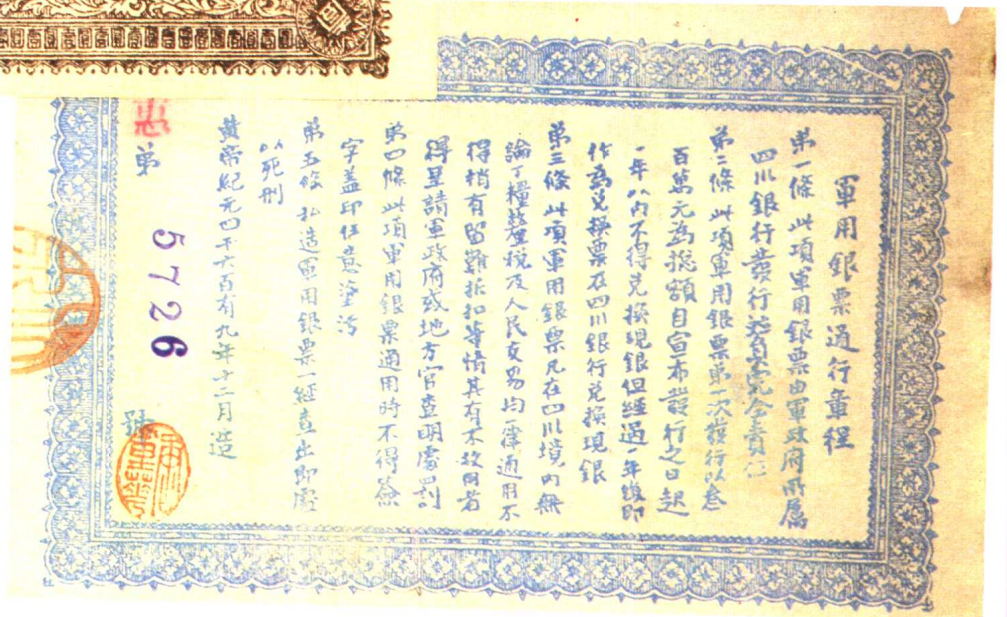 軍用銀票通行章程
第一條 此項軍用銀票由軍政府所屬
四川銀行發行登首完全責仁
第二條 此項軍用銀票第一次發行以叁
百萬元為總額自宣布發行之日起
一年以內不得兌換現銀但經過一年後即
作為兌換票在四川銀行兌換現銀
第三條 此項軍用銀票凡在四川境內無
論丁糧釐稅及人民交易均一律通用不
得稍有留難折扣等情其有不收用者
得呈請軍政府或地方官查明處罰
第四條 此項軍用銀票通用時不得簽
字蓋印任意塗污
第五條 私造軍用銀票一經查出即處
以死刑
黃帝紀元四千六百有九年十二月造
惠 第 5726 號